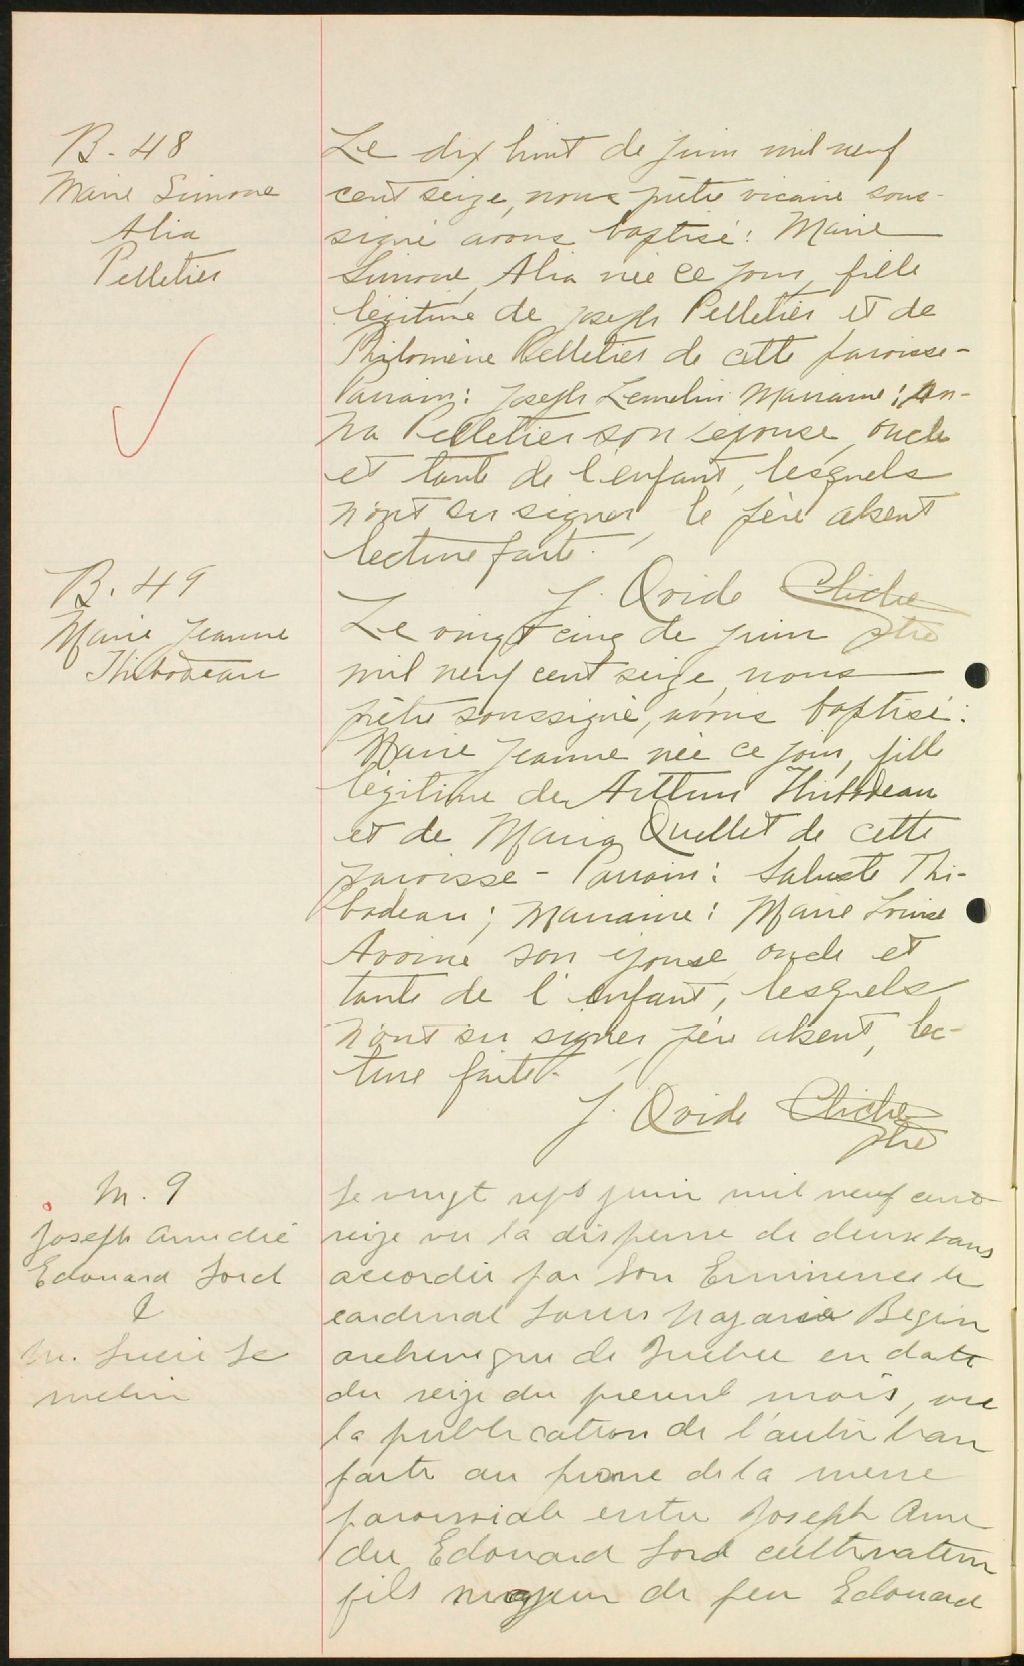 B. 48
Marie Simone
Alia
Pelletier
Le dix huit de juin mil neuf
cent seize, nous prêtre vicaire sous-
signé avons baptisé: Marie
Simone, Alia née ce jour, fille
légitime de Joseph Pelletier et de
Philomène Pelletier de cette paroisse-
Parrain: Joseph Lemelin Marraine: An-
na Pelletier son épouse, oncle
et tante de l'enfant, lesquels
n'ont su signer, le père absent
lecture faite.
J. Ovide Cliche
ptre
B. 49
Marie Jeanne
Thibodeau
Le vingt cinq de juin
mil neuf cent seize, nous
prêtre soussigné, avons baptisé:
Marie Jeanne née ce jour, fille
légitime de Arthur Thibodeau
et de Maria Ouellet de cette
paroisse - Parrain: Saluste Thi-
bodeau; Marraine: Marie Louise
Avoine son épouse oncle et
tante de l'enfant, lesquels
n'ont su signer père absent, lec-
ture faite.
J. Ovide Cliche
ptre
M. 9
Joseph Amedié
Edouard Lord
&
M. Lucie Le
melin
Le vingt sept juin mil neuf cent
seize vu la dispense de deux bans
accordée par Son Eminence le
cardinal Louis Nazaire Begin
archevêque de Québec en date
du seize du présent mois, vu
la publication de l'autre ban
faite au prone de la messe
paroissiale entre Joseph Ame
dée Edouard Lord cultivateur
fils majeur de feu Edouard